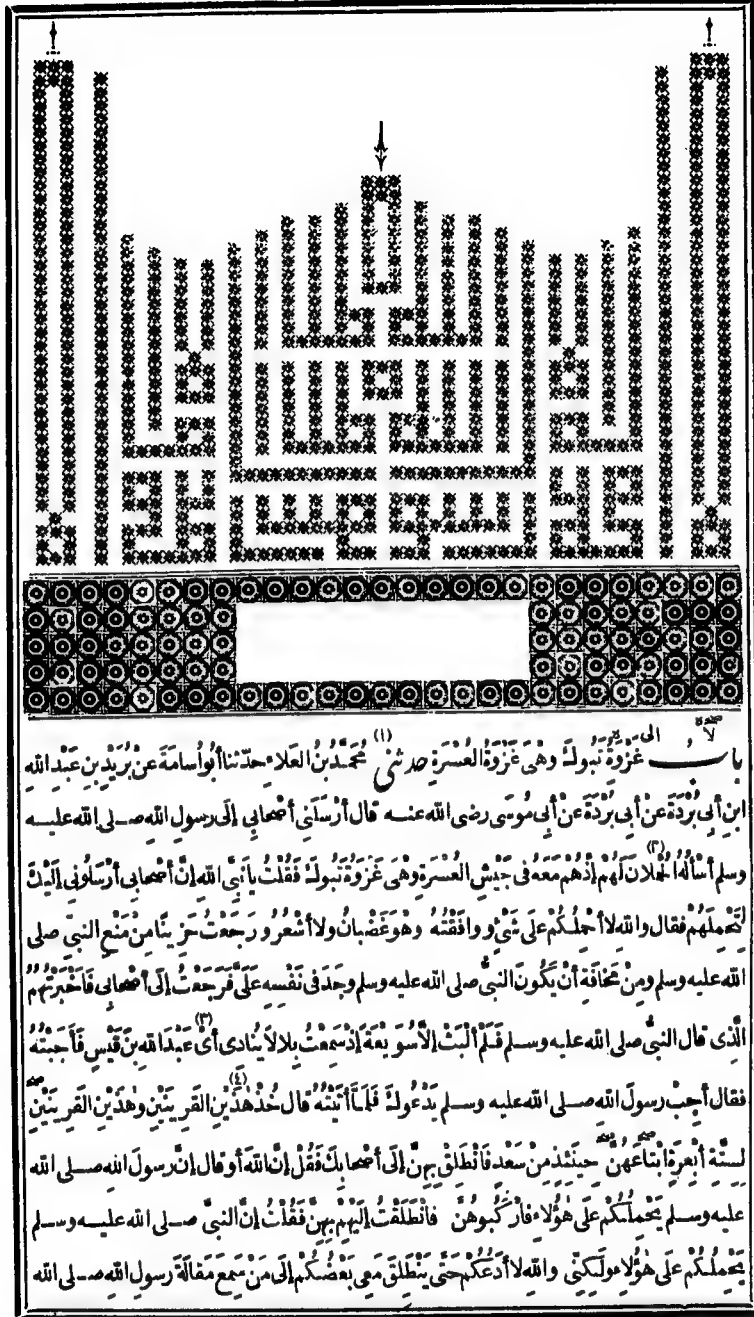 بَابُ غَزْوَةِ تَبُوكَ وَهْىَ غَزْوَةُ الْعُسْرَةِ حدثنى (١) مُحَمَّدُ بْنُ الْعَلَاءِ حدّثنا أَبُو أُسَامَةَ عَنْ بُرَيْدِ بْنِ عَبْدِ الله
ابنِ أَبِى بُرْدَةَ عَنْ أَبِى بُرْدَةَ عَنْ أَبِى مُوسَى رضى الله عنه قال أَرْسَلَنِى أَصْحَابِى إلَى رسولِ اللهِ صلى الله عليه
وسلم أَسْأَلُهُ الْحُمْلَانَ (٢) لَهُمْ إِذْ هُمْ مَعَهُ فى جَيْشِ الْعُسْرَةِ وهْىَ غَزْوَةُ تَبُوكَ فَقُلْتُ يا نَبِىَّ اللهِ إنَّ أَصْحَابِى أَرْسَلُونِى إلَيْكَ
لِتَحْمِلَهُمْ فقال واللهِ لا أَحْمِلُكُمْ عَلَى شَىْءٍ ووافَقْتُهُ وهْوَ غَضْبَانُ ولا أَشْعُرُ ورَجَعْتُ حَزِينًا مِنْ مَنْعِ النبىِّ صلى
الله عليه وسلم ومِنْ مَخَافَةِ أَنْ يَكُونَ النبىُّ صلى الله عليه وسلم وجَدَ فى نَفْسِهِ عَلَىَّ فَرَجَعْتُ إلَى أَصْحَابِى فَأَخْبَرْتُهُمُ
الَّذِى قال النبىُّ صلى الله عليه وسلم فَلَمْ أَلْبَثْ إلَّا سُوَيْعَةً إذْ سَمِعْتُ بِلَالًا يُنَادِى أَىْ (٣) عَبْدَ اللهِ بنَ قَيْسٍ فَأَجَبْتُهُ
فقال أَجِبْ رسولَ اللهِ صلى الله عليه وسلم يَدْعُوكَ فَلَمَّا أَتَيْتُهُ قال خُذْ هٰذَيْنِ (٤) الْقَرِينَيْنِ وهٰذَيْنِ الْقَرِينَيْنِ
لِسِتَّةِ أَبْعِرَةٍ ابْتَاعَهُنَّ حِينَئِذٍ مِنْ سَعْدٍ فَانْطَلِقْ بِهِنَّ إلَى أَصْحَابِكَ فَقُلْ إنَّ اللهَ أو قال إنَّ رسولَ اللهِ صلى الله
عليه وسلم يَحْمِلُكُمْ عَلَى هٰؤُلَاءِ فَارْكَبُوهُنَّ فَانْطَلَقْتُ إلَيْهِمْ بِهِنَّ فَقُلْتُ إنَّ النبىَّ صلى الله عليه وسلم
يَحْمِلُكُمْ عَلَى هٰؤُلَاءِ ولٰكِنِّى واللهِ لا أَدَعُكُمْ حَتَّى يَنْطَلِقَ مَعِى بَعْضُكُمْ إلَى مَنْ سَمِعَ مَقَالَةَ رسولِ اللهِ صلى الله